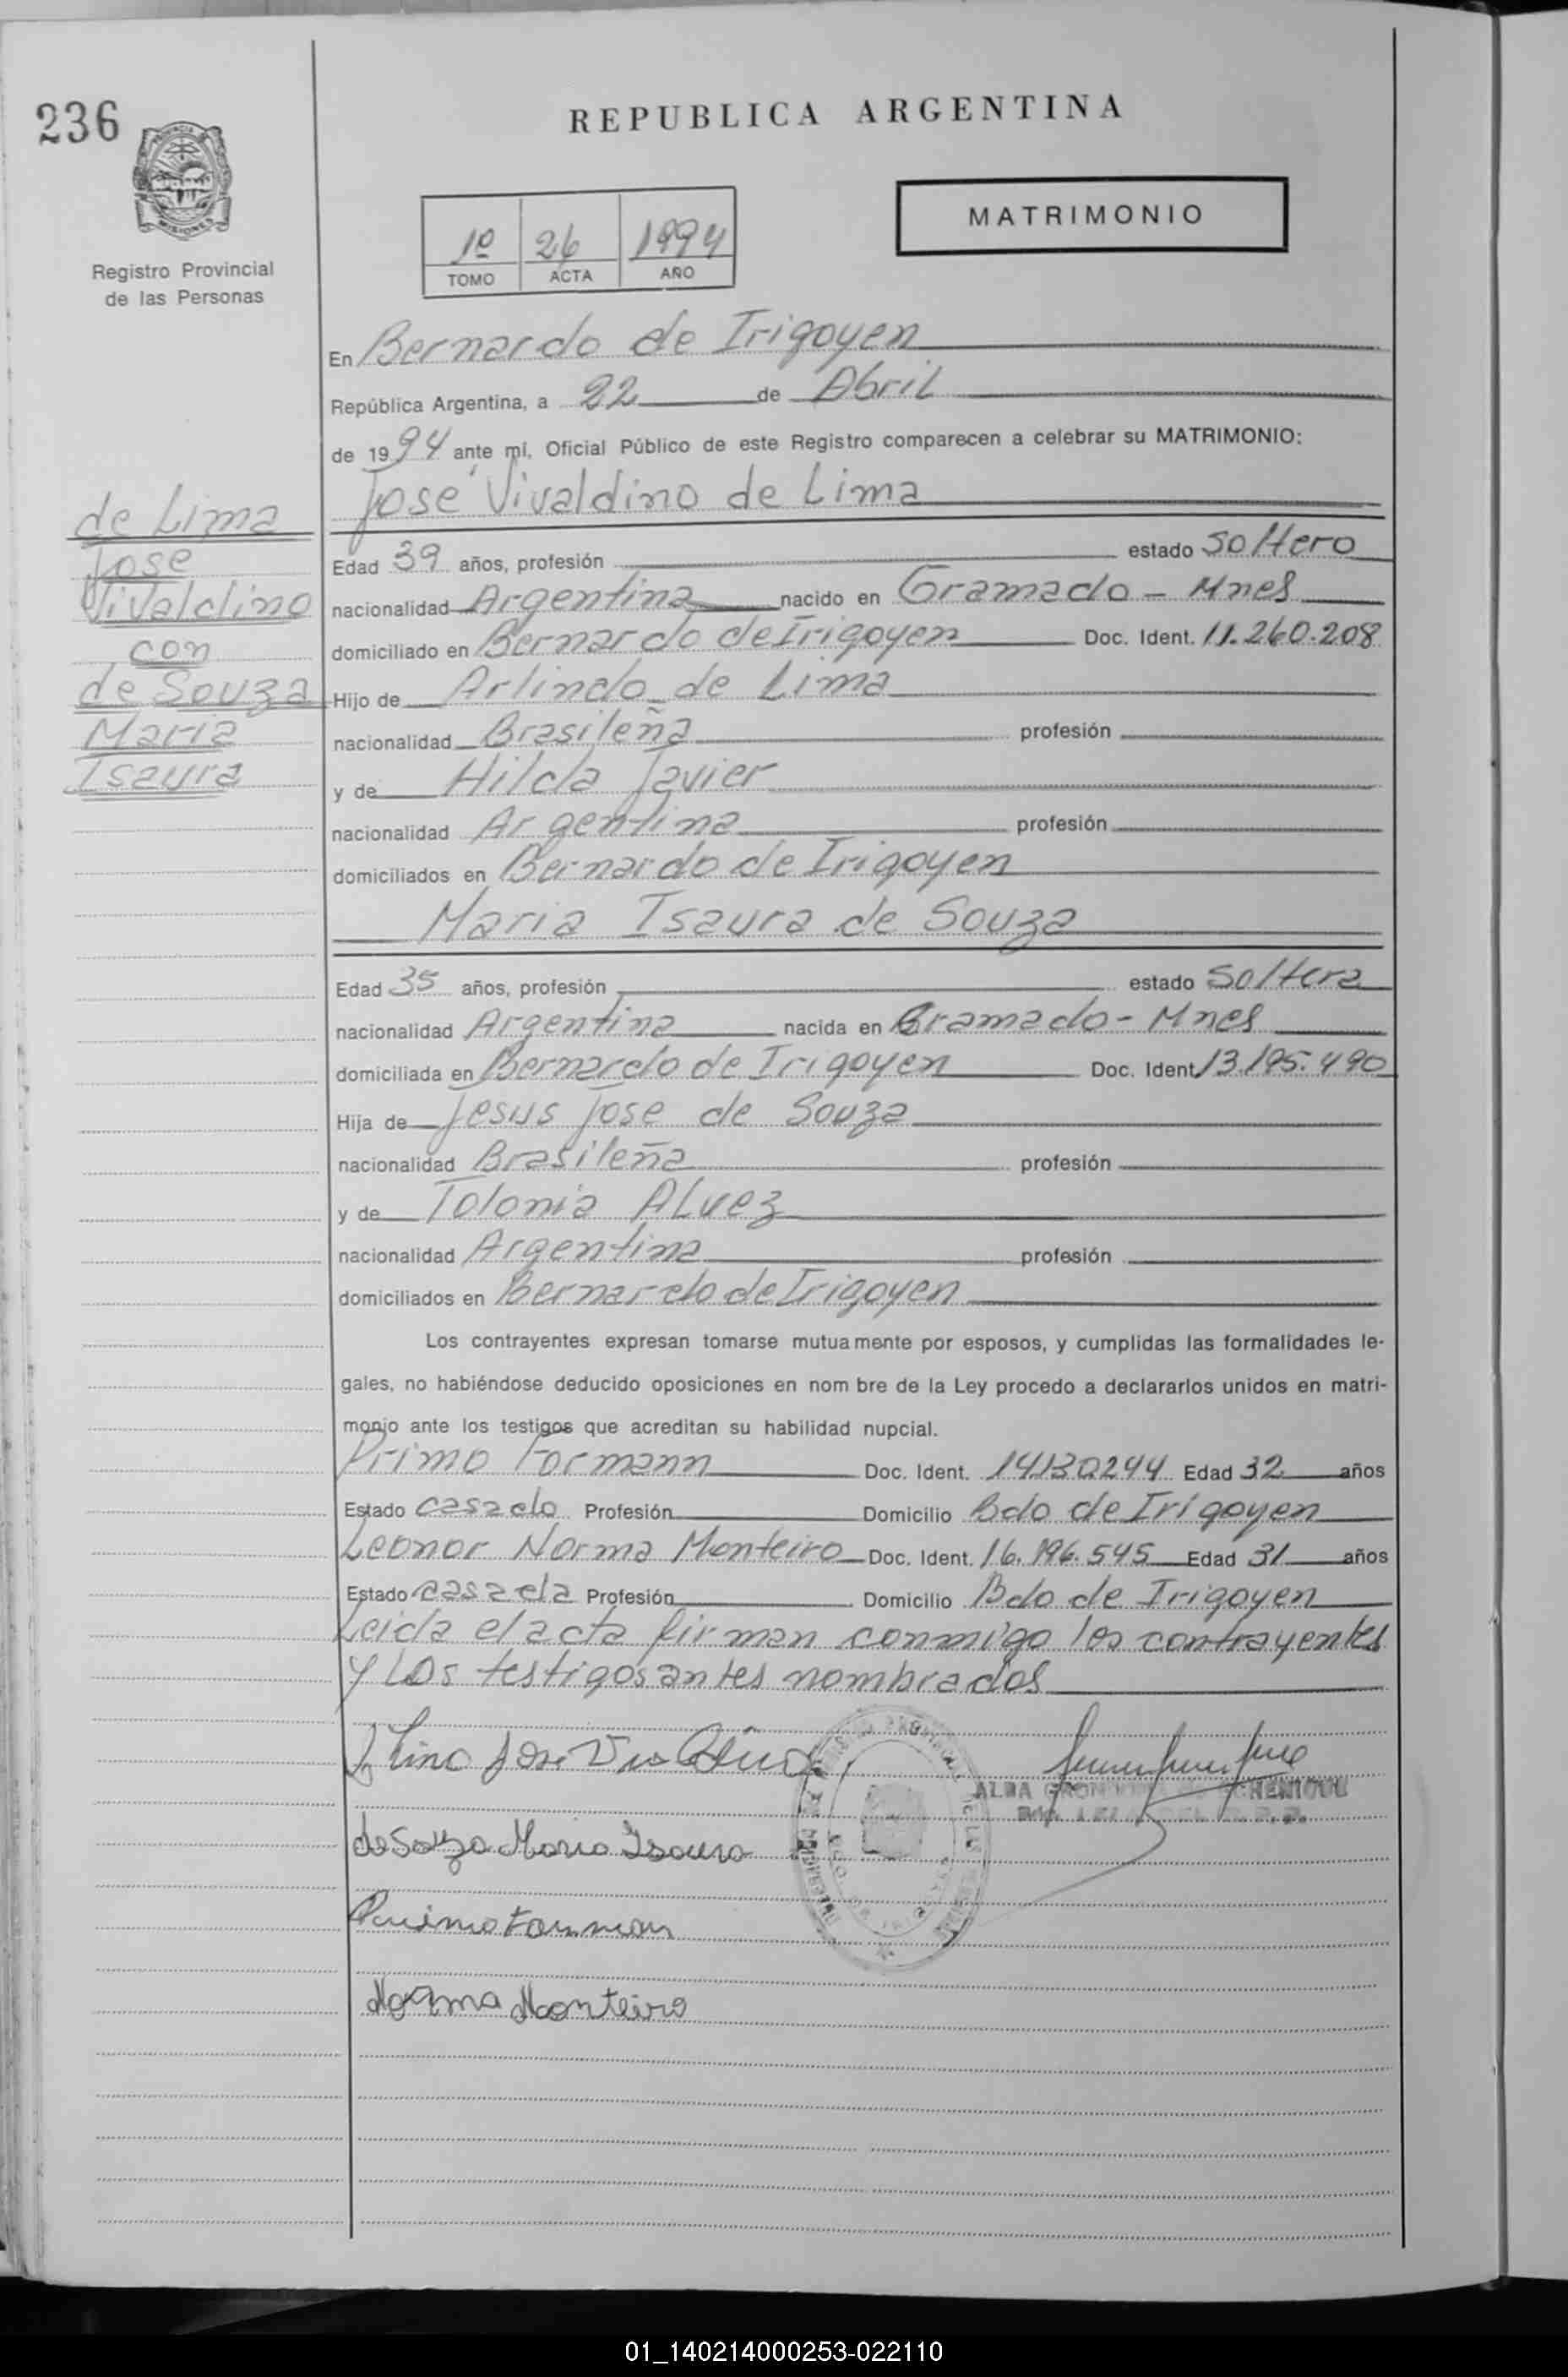 236
REPUBLICA ARGENTINA
MATRIMONIO
1º 26 1994
TOMO ACTA AÑO
Registro Provincial
de las Personas
En Bernardo de Irigoyen
República Argentina, a 22 de Abril
de 1994 ante mí, Oficial Público de este Registro comparecen a celebrar su MATRIMONIO:
José Vivaldino de Lima
de Lima
Jose
Vivaldino
con
de Souza
Maria
Isaura
Edad 39 años, profesión estado soltero
nacionalidad Argentina nacido en Gramado - Mnes
domiciliado en Bernardo de Irigoyen Doc. Ident. 11.260.208
Hijo de Arlindo de Lima
nacionalidad Brasileña profesión
y de Hilda Javier
nacionalidad Argentina profesión
domiciliados en Bernardo de Irigoyen
Maria Isaura de Souza
Edad 35 años, profesión estado soltera
nacionalidad Argentina nacida en Gramado - Mnes
domiciliada en Bernardo de Irigoyen Doc. Ident. 13.195.490
Hija de Jesus Jose de Souza
nacionalidad Brasileña profesión
y de Tolonia Alvez
nacionalidad Argentina profesión
domiciliados en Bernardo de Irigoyen
Los contrayentes expresan tomarse mutuamente por esposos, y cumplidas las formalidades le-
gales, no habiéndose deducido oposiciones en nom bre de la Ley procedo a declararlos unidos en matri-
monio ante los testigos que acreditan su habilidad nupcial.
Primo Formann Doc. Ident. 14130244 Edad 32 años
Estado casado Profesión Domicilio Bdo de Irigoyen
Leonor Norma Monteiro Doc. Ident. 16.196.545 Edad 31 años
Estado casada Profesión Domicilio Bdo de Irigoyen
Leida el acta firman conmigo los contrayentes
y los testigos antes nombrados
ALBA
de Souza Maria Isaura
Primo Forman
Norma Monteiro
01_140214000253-022110